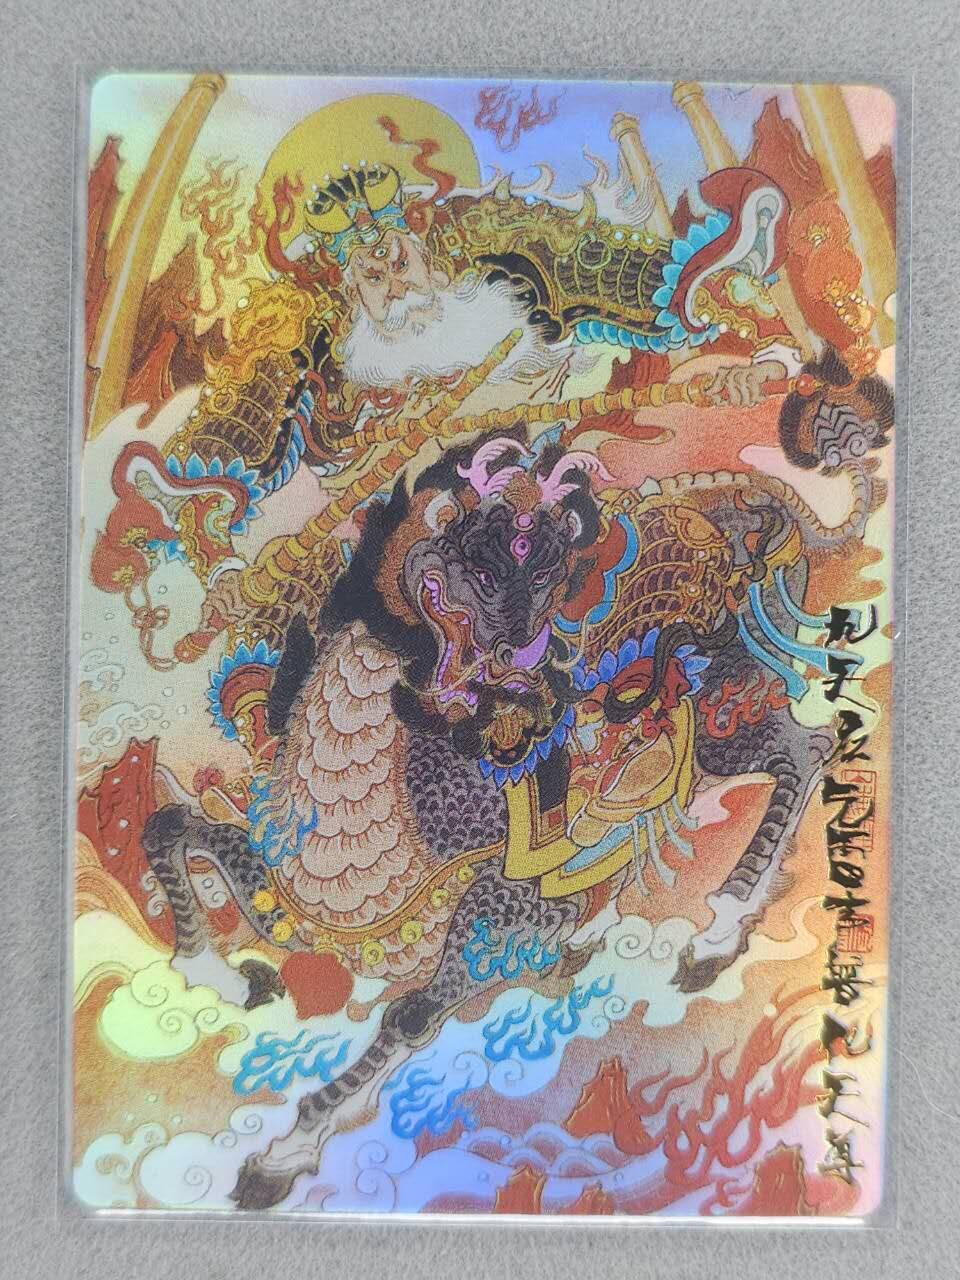 九天应元雷声普化天尊